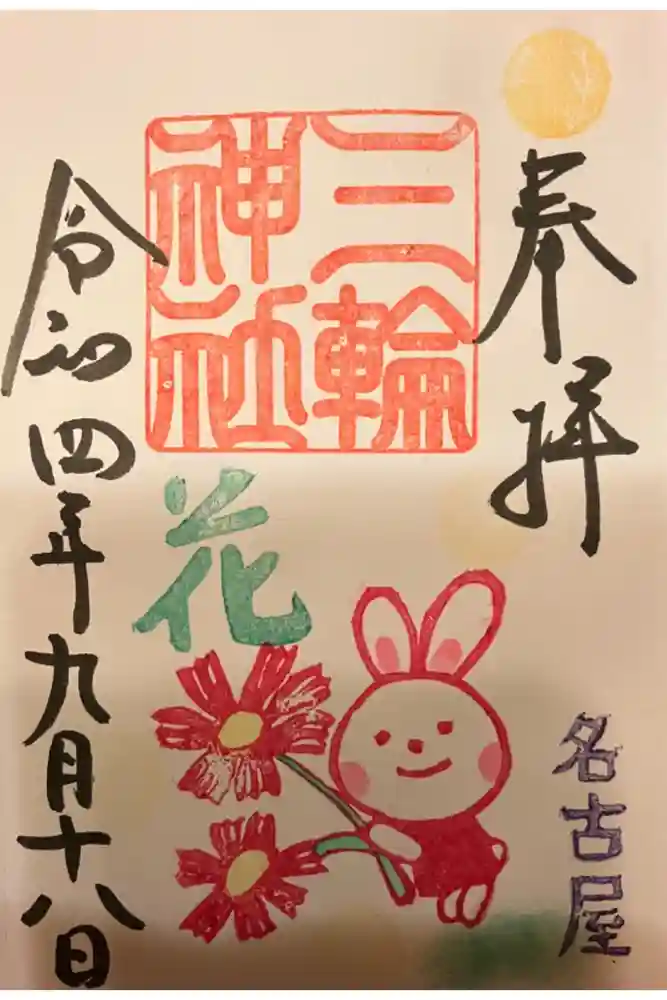 奉拝
三輪
神社
花
名古屋
令和四年九月十八日